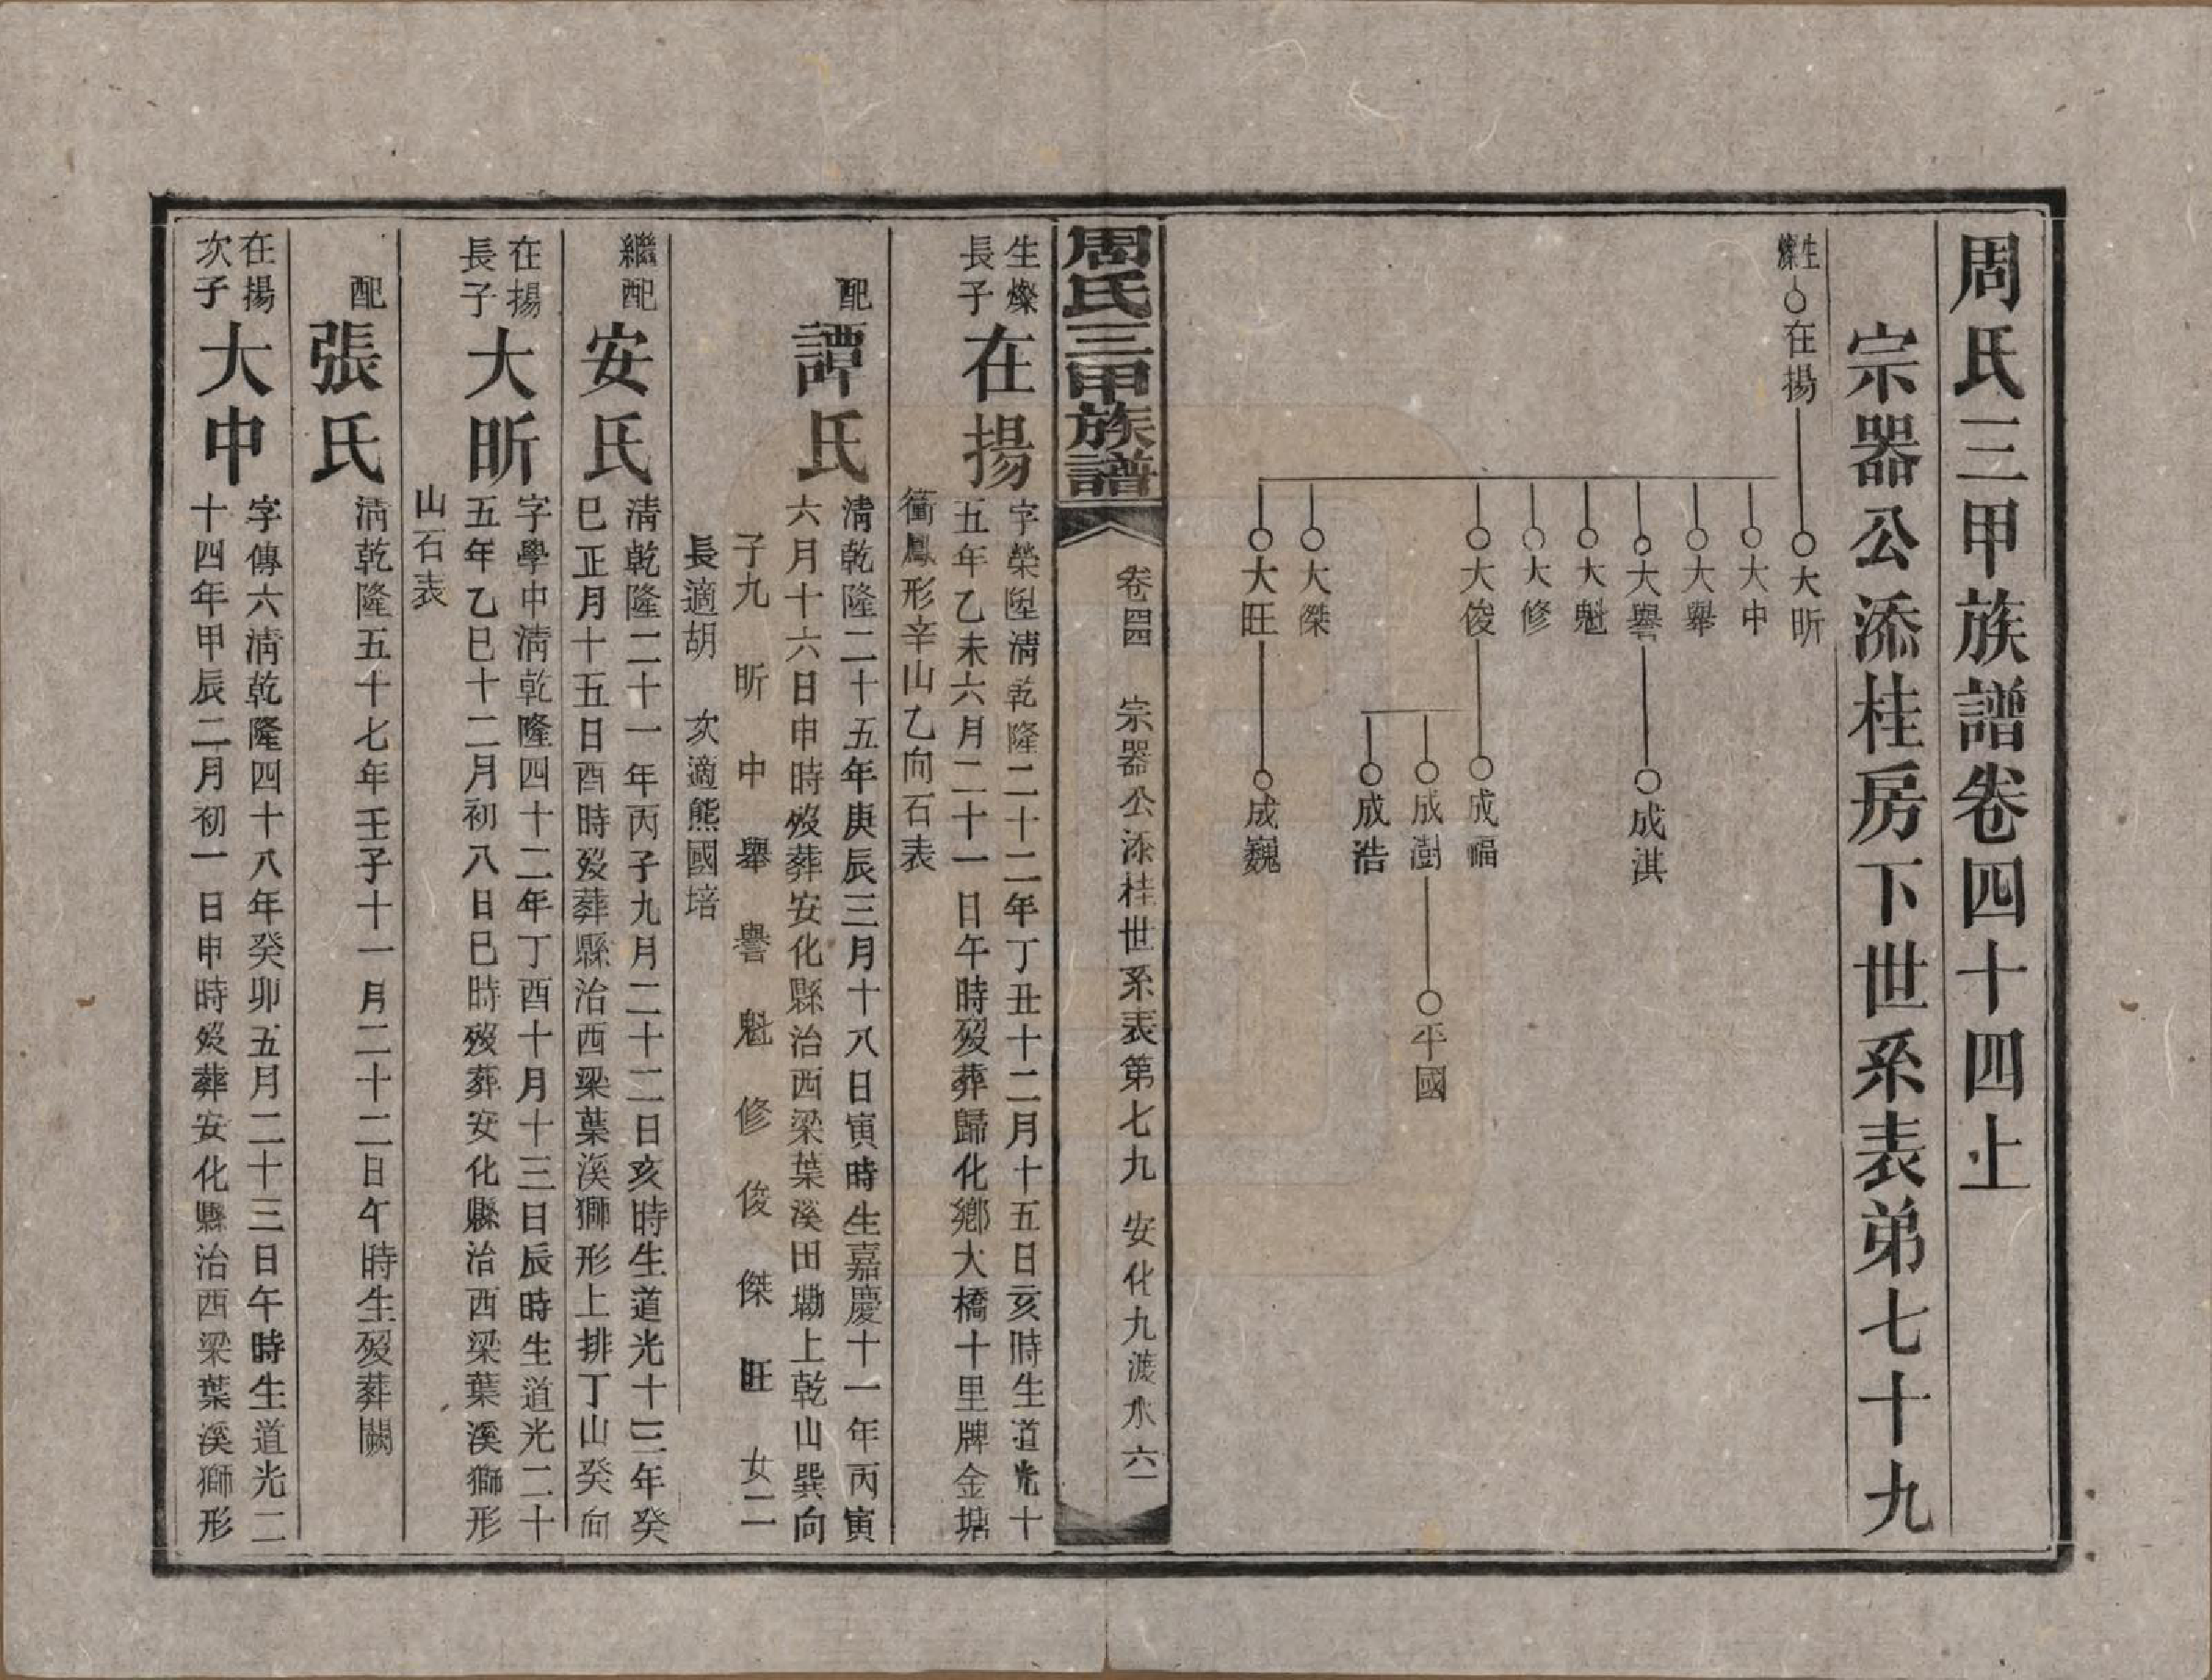 周氏三甲族譜卷四十四上
宗器公添桂房下世系表弟七十九
生燦
在揚
大昕
大中
大舉
大譽
大魁
大修
大俊
大傑
大旺
成淇
成福
成澍
成浩
成巍
平國
周氏三甲族譜
卷四四
宗器公添桂世系表第七九
安化九渡水六一
生燦
長子
在揚
字榮陞清乾隆二十二年丁丑十二月十五日亥時生道光十
五年乙未六月二十一日午時歿葬歸化鄉大橋十里牌金塘
衝鳳形辛山乙向石表
配
譚氏
清乾隆二十五年庚辰三月十八日寅時生嘉慶十一年丙寅
六月十六日申時歿葬安化縣治西梁葉溪田墈上乾山巽向
子九 昕 中 舉 譽 魁 修 俊 傑 旺 女二
長適胡 次適熊國培
繼配
安氏
清乾隆二十一年丙子九月二十二日亥時生道光十三年癸
巳正月十五日酉時歿葬縣治西梁葉溪獅形上排丁山癸向
在揚
長子
大昕
字學中清乾隆四十二年丁酉十月十三日辰時生道光二十
五年乙巳十二月初八日巳時歿葬安化縣治西梁葉溪獅形
山石表
配
張氏
清乾隆五十七年壬子十一月二十二日午時生歿葬闕
在揚
次子
大中
字傳六清乾隆四十八年癸卯五月二十三日午時生道光二
十四年甲辰二月初一日申時歿葬安化縣治西梁葉溪獅形